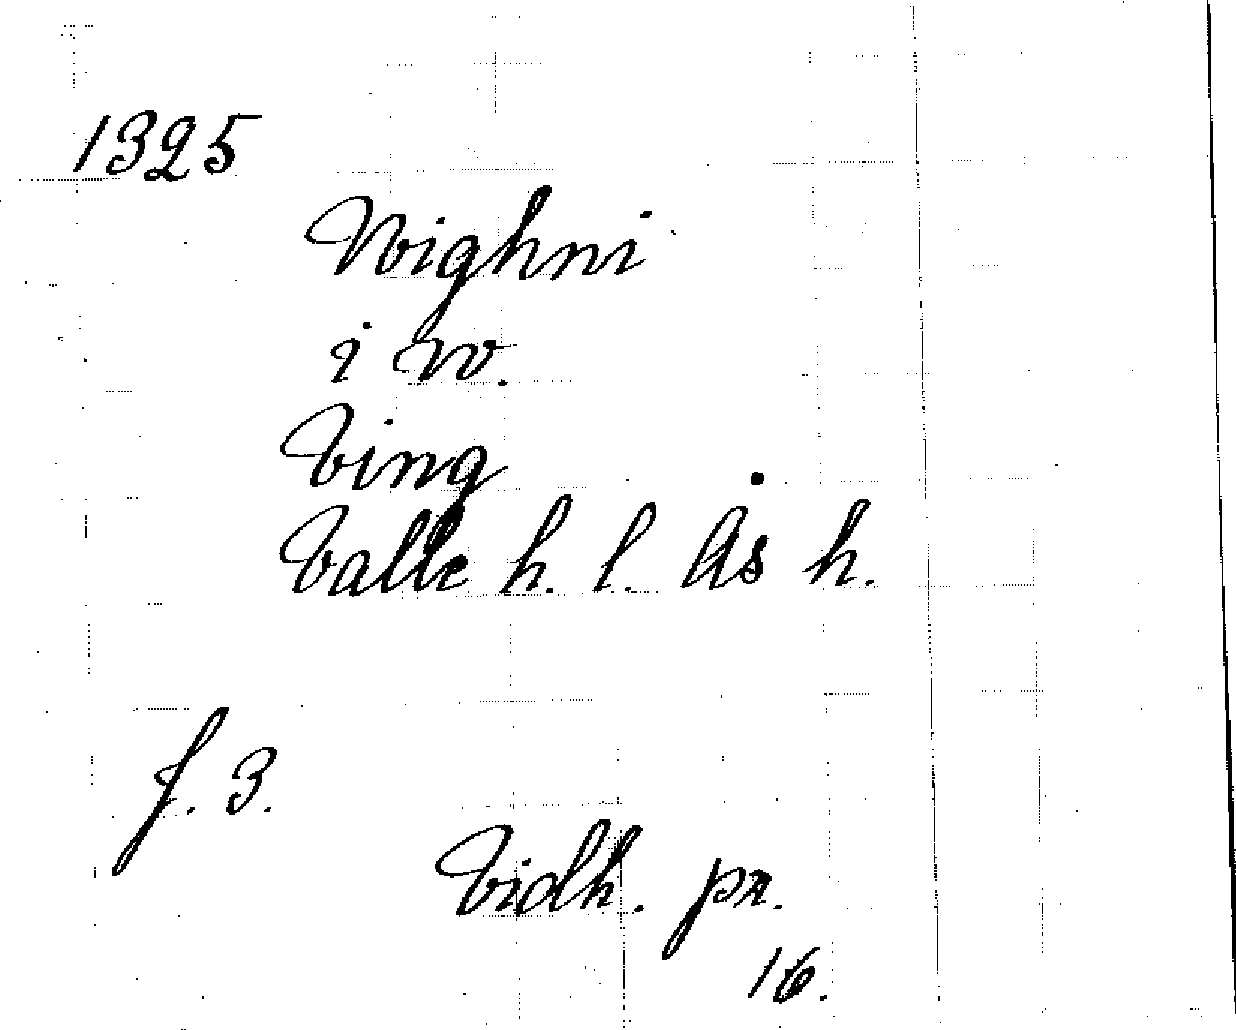 1325
Wighni
i w.
Ving
Valle h. l. Ås h.
f. 3.
Vidh. pr.
16.